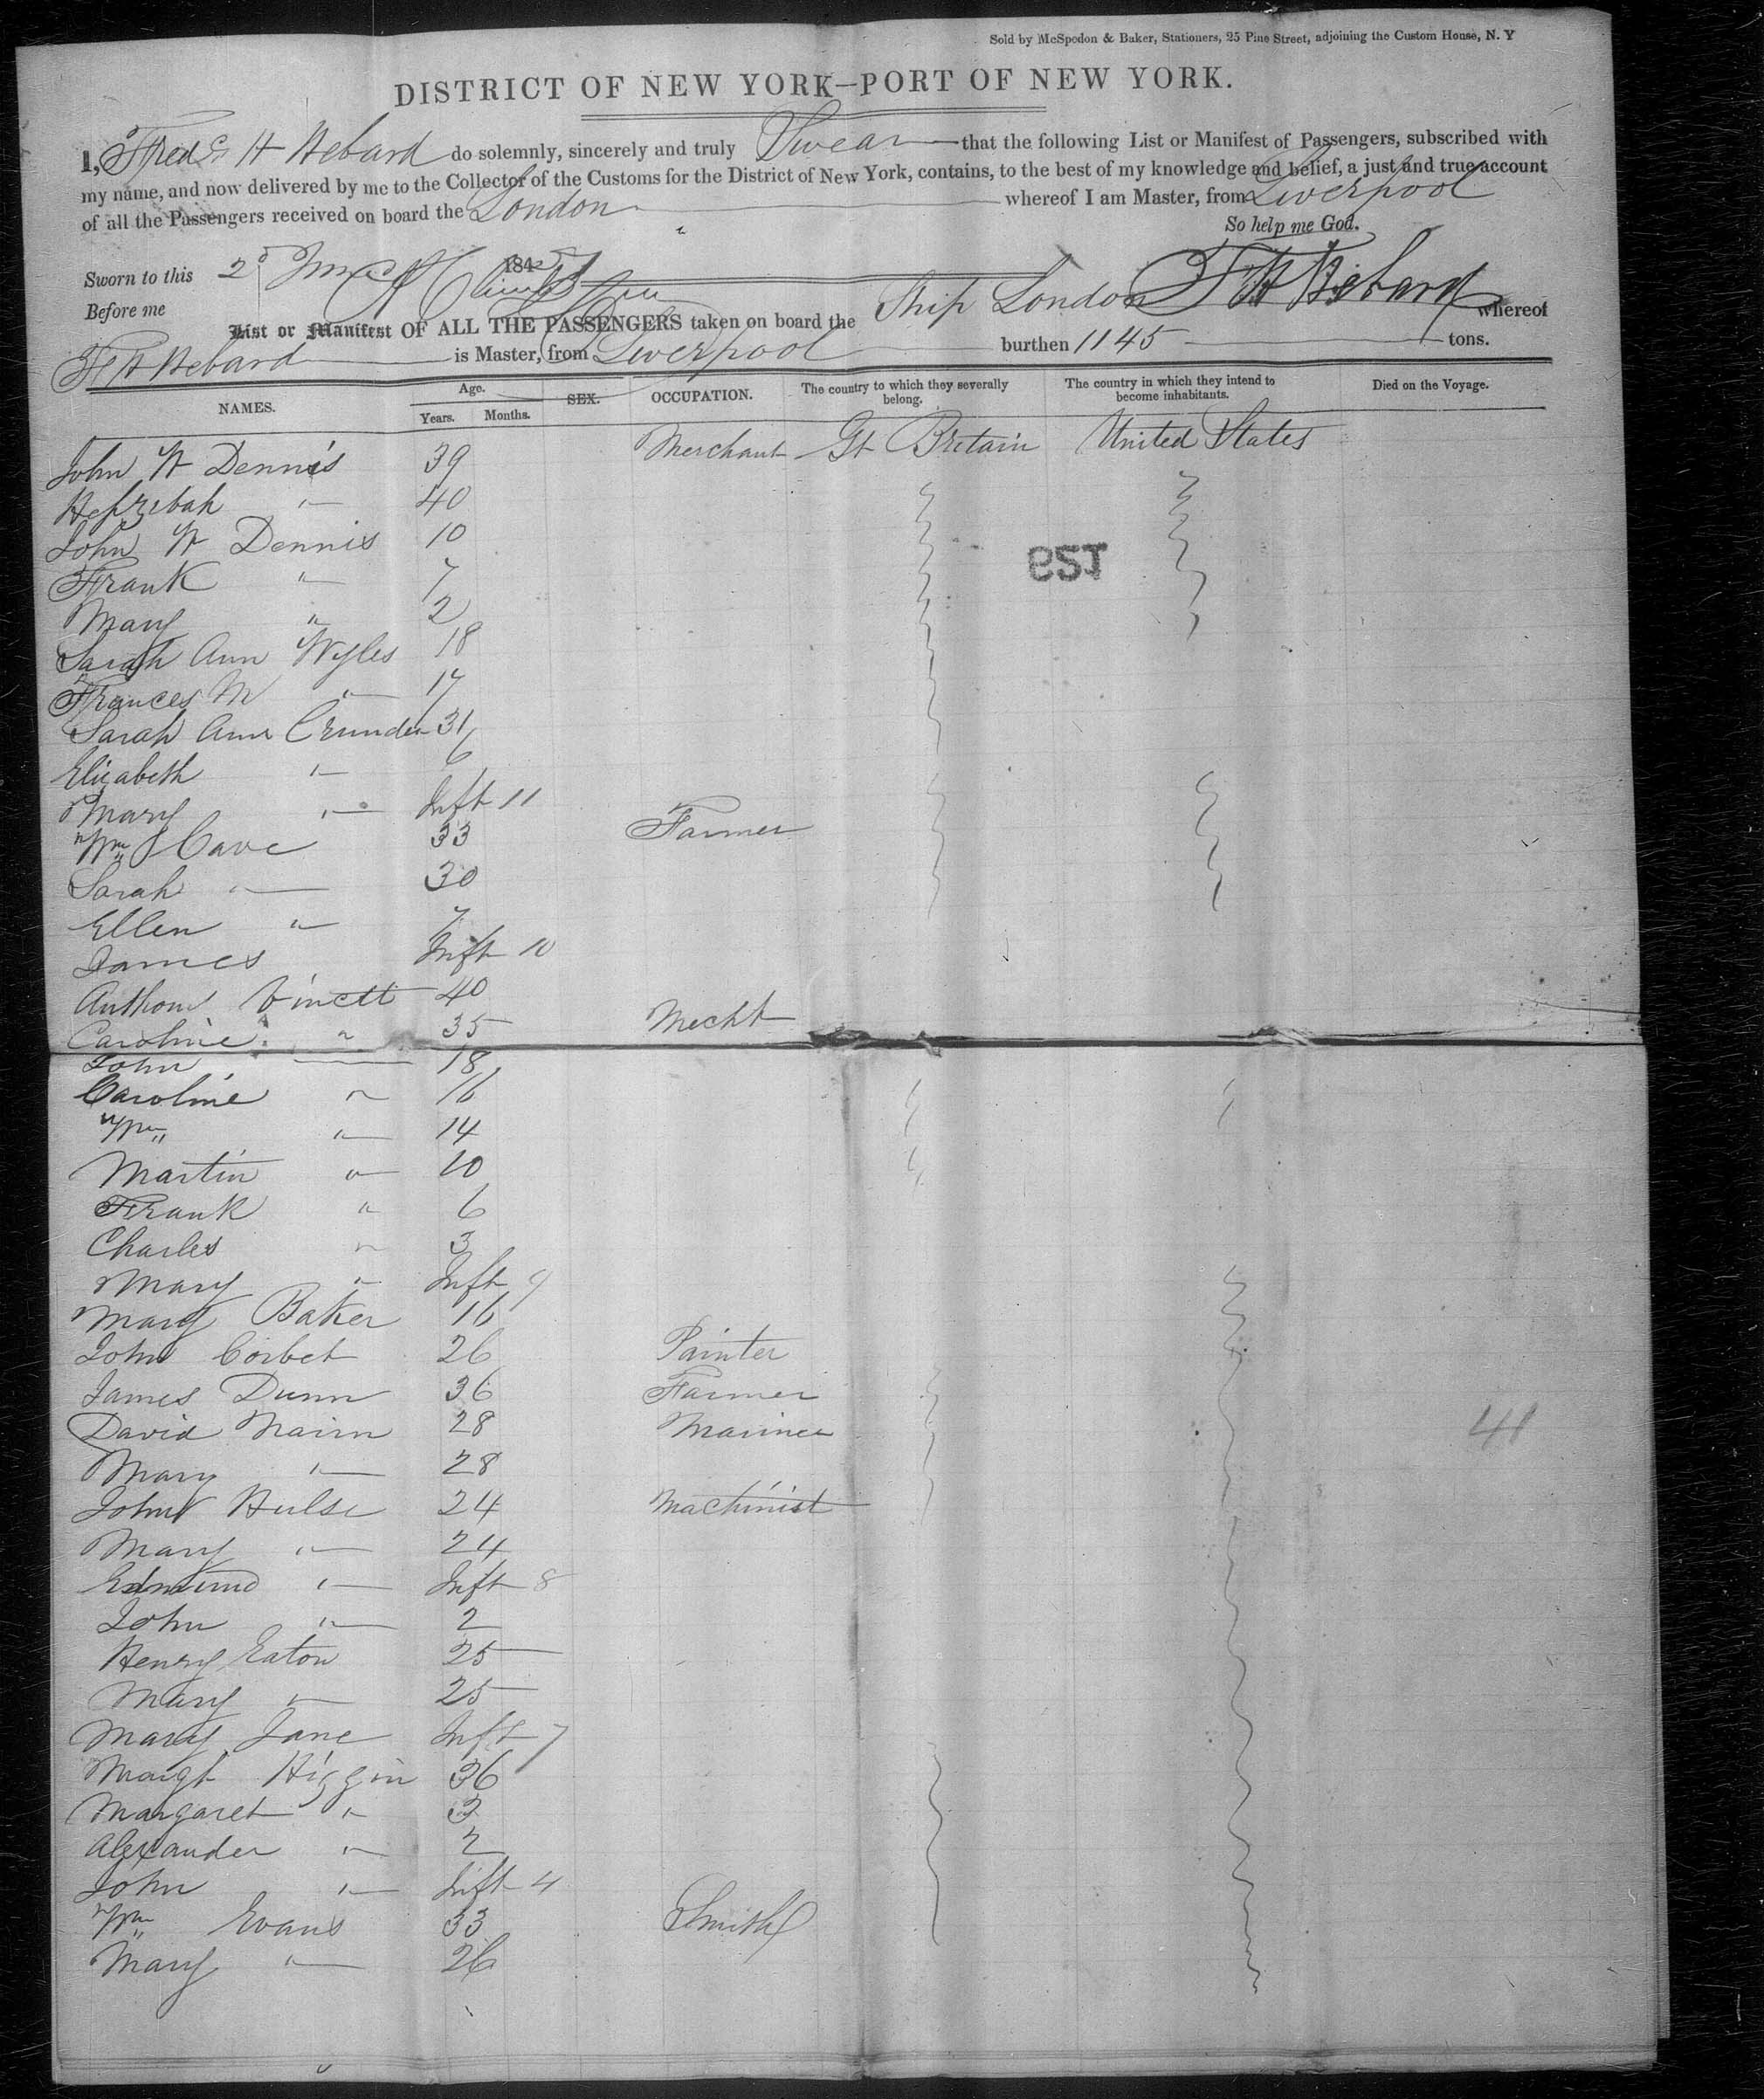 Sold by McSpedon & Baker, Stationers, 25 Pine Street, adjoining the Custom House, N. Y
DISTRICT OF NEW YORK—PORT OF NEW YORK.
I, Fredk H Hebard do solemnly, sincerely and truly Swear that the following List or Manifest of Passengers, subscribed with
my name, and now delivered by me to the Collector of the Customs for the District of New York, contains, to the best of my knowledge and belief, a just and true account
of all the Passengers received on board the London whereof I am Master, from Liverpool
So help me God.
Sworn to this 2d 184
Before me F H Hebard
List or Manifest OF ALL THE PASSENGERS taken on board the Ship London whereof
F H Hebard is Master, from Liverpool burthen 1145 tons.
NAMES. Age. Years. Months. SEX. OCCUPATION. The country to which they severally belong. The country in which they intend to become inhabitants. Died on the Voyage.
John W Dennis 39 Merchant Gt Britain United States
Hepzebah " 40
John W Dennis 10
Frank " 7
Mary " 2
129
Sarah Ann Wyles 18
Frances M " 17
Sarah Ann Crunden 31
Elizabeth " 6
Mary " Inft 11
Wm Cave 33 Farmer
Sarah " 30
Ellen " 7
James Inft 10
Anthony Vinett 40
Caroline " 35 Mecht
John 18
Caroline " 16
Wm " 14
Martin " 10
Frank " 6
Charles " 3
Mary " Inft 9
Mary Baker 16
John Corbet 26 Painter
James Dunn 36 Farmer
David Nairn 28 Mariner 41
Mary " 28
John Hulse 24 Machinist
Mary " 24
Edmund " Inft 8
John " 2
Henry Eaton 25
Mary " 25
Mary Jane Inft 7
Margt Higgin 36
Margaret " 3
Alexander " 2
John " Inft 4
Wm Evans 33 Smith
Mary " 26